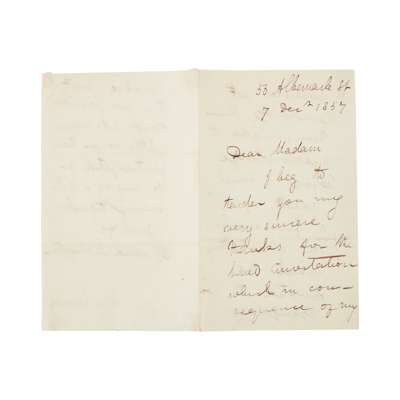 53 Albemarle St
7 Decr 1857
Dear Madam
I beg to
tender you my
very sincere
thanks for the
kind invitation
which in con-
sequence of my